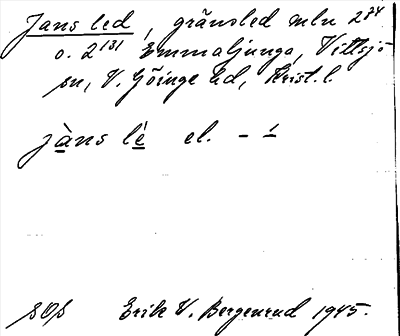 Jans led, gränsled mln 2⁷⁴
o. 2¹³¹ Emmaljunga, Vittsjö
sn, V. Göinge hd, Krist. l.
jàns lé el. – ´
SOS Erik V. Bergenrud 1945.